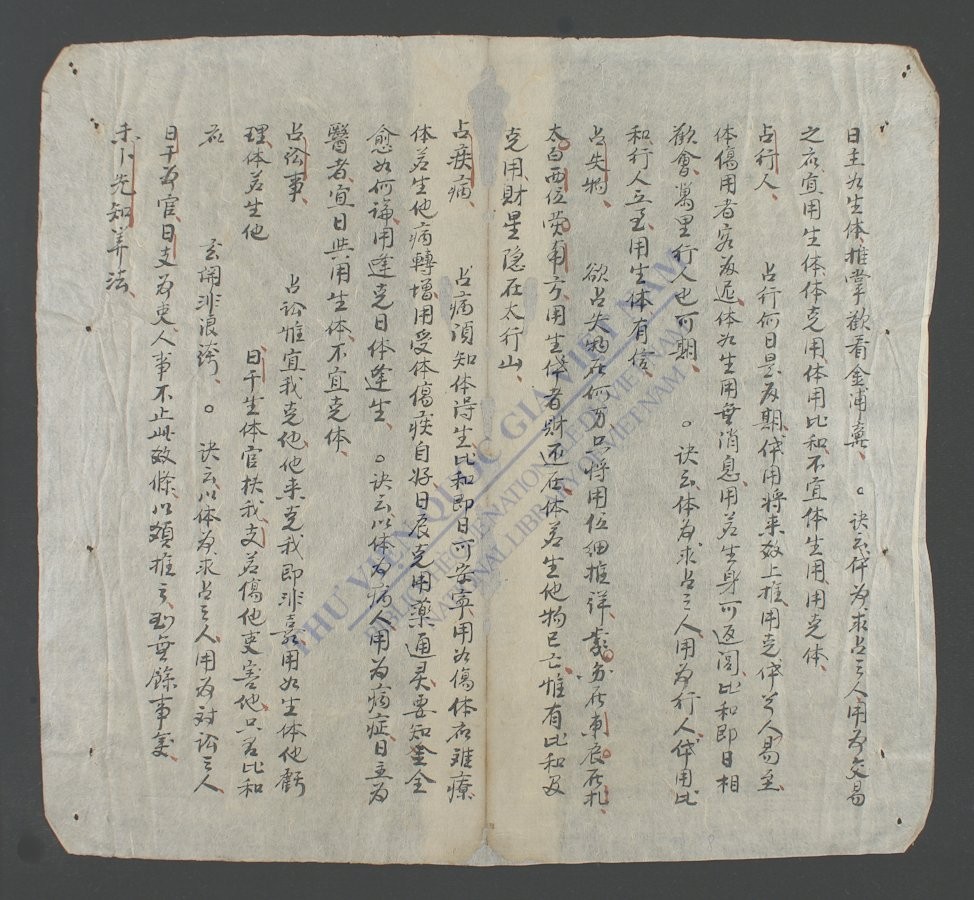 日主如生体推掌欲看金浦奠。訣云体为求占之人用为交易
之应宜用生体体克用体用比和不宜体生用用克体
占行人 占行何日是反期体用将来效上推用克体兮人易至
体傷用者客为迟体如生用無消息用若生身可返閭比和即日相
歡會萬里行人也可期。訣云体为求占之人用为行人体用比
和行人立至用生体有信
占失物 欲占失物在何方只将用位细推详
太白西位熒南方用生体者財还在体若生他物已亡惟有比和及
克用財星隐在太行山
占疾病 占病須知体得生比和即日可安寧用如傷体应难療
体若生他病轉增用受体傷疾自好日辰克用藥通灵要知奎全
愈如何論用逢克日体逢生。訣云以体为病人用为病症日主为
醫者宜日與用生体不宜克体
占讼事 占讼惟宜我克他他来克我即非嘉用如生体他虧
理体若生他 日干生体官扶我支若傷他吏害他只若比和
应 玄開非浪誇。訣云以体为求占之人用为对讼之人
日干为官日支为吏人事不止此数條以類推之則無餘事矣
未卜先知美法
THƯ VIỆN QUỐC GIA VIỆT NAM
BIBLIOTHÈQUE NATIONALE DU VIETNAM
NATIONAL LIBRARY OF VIETNAM